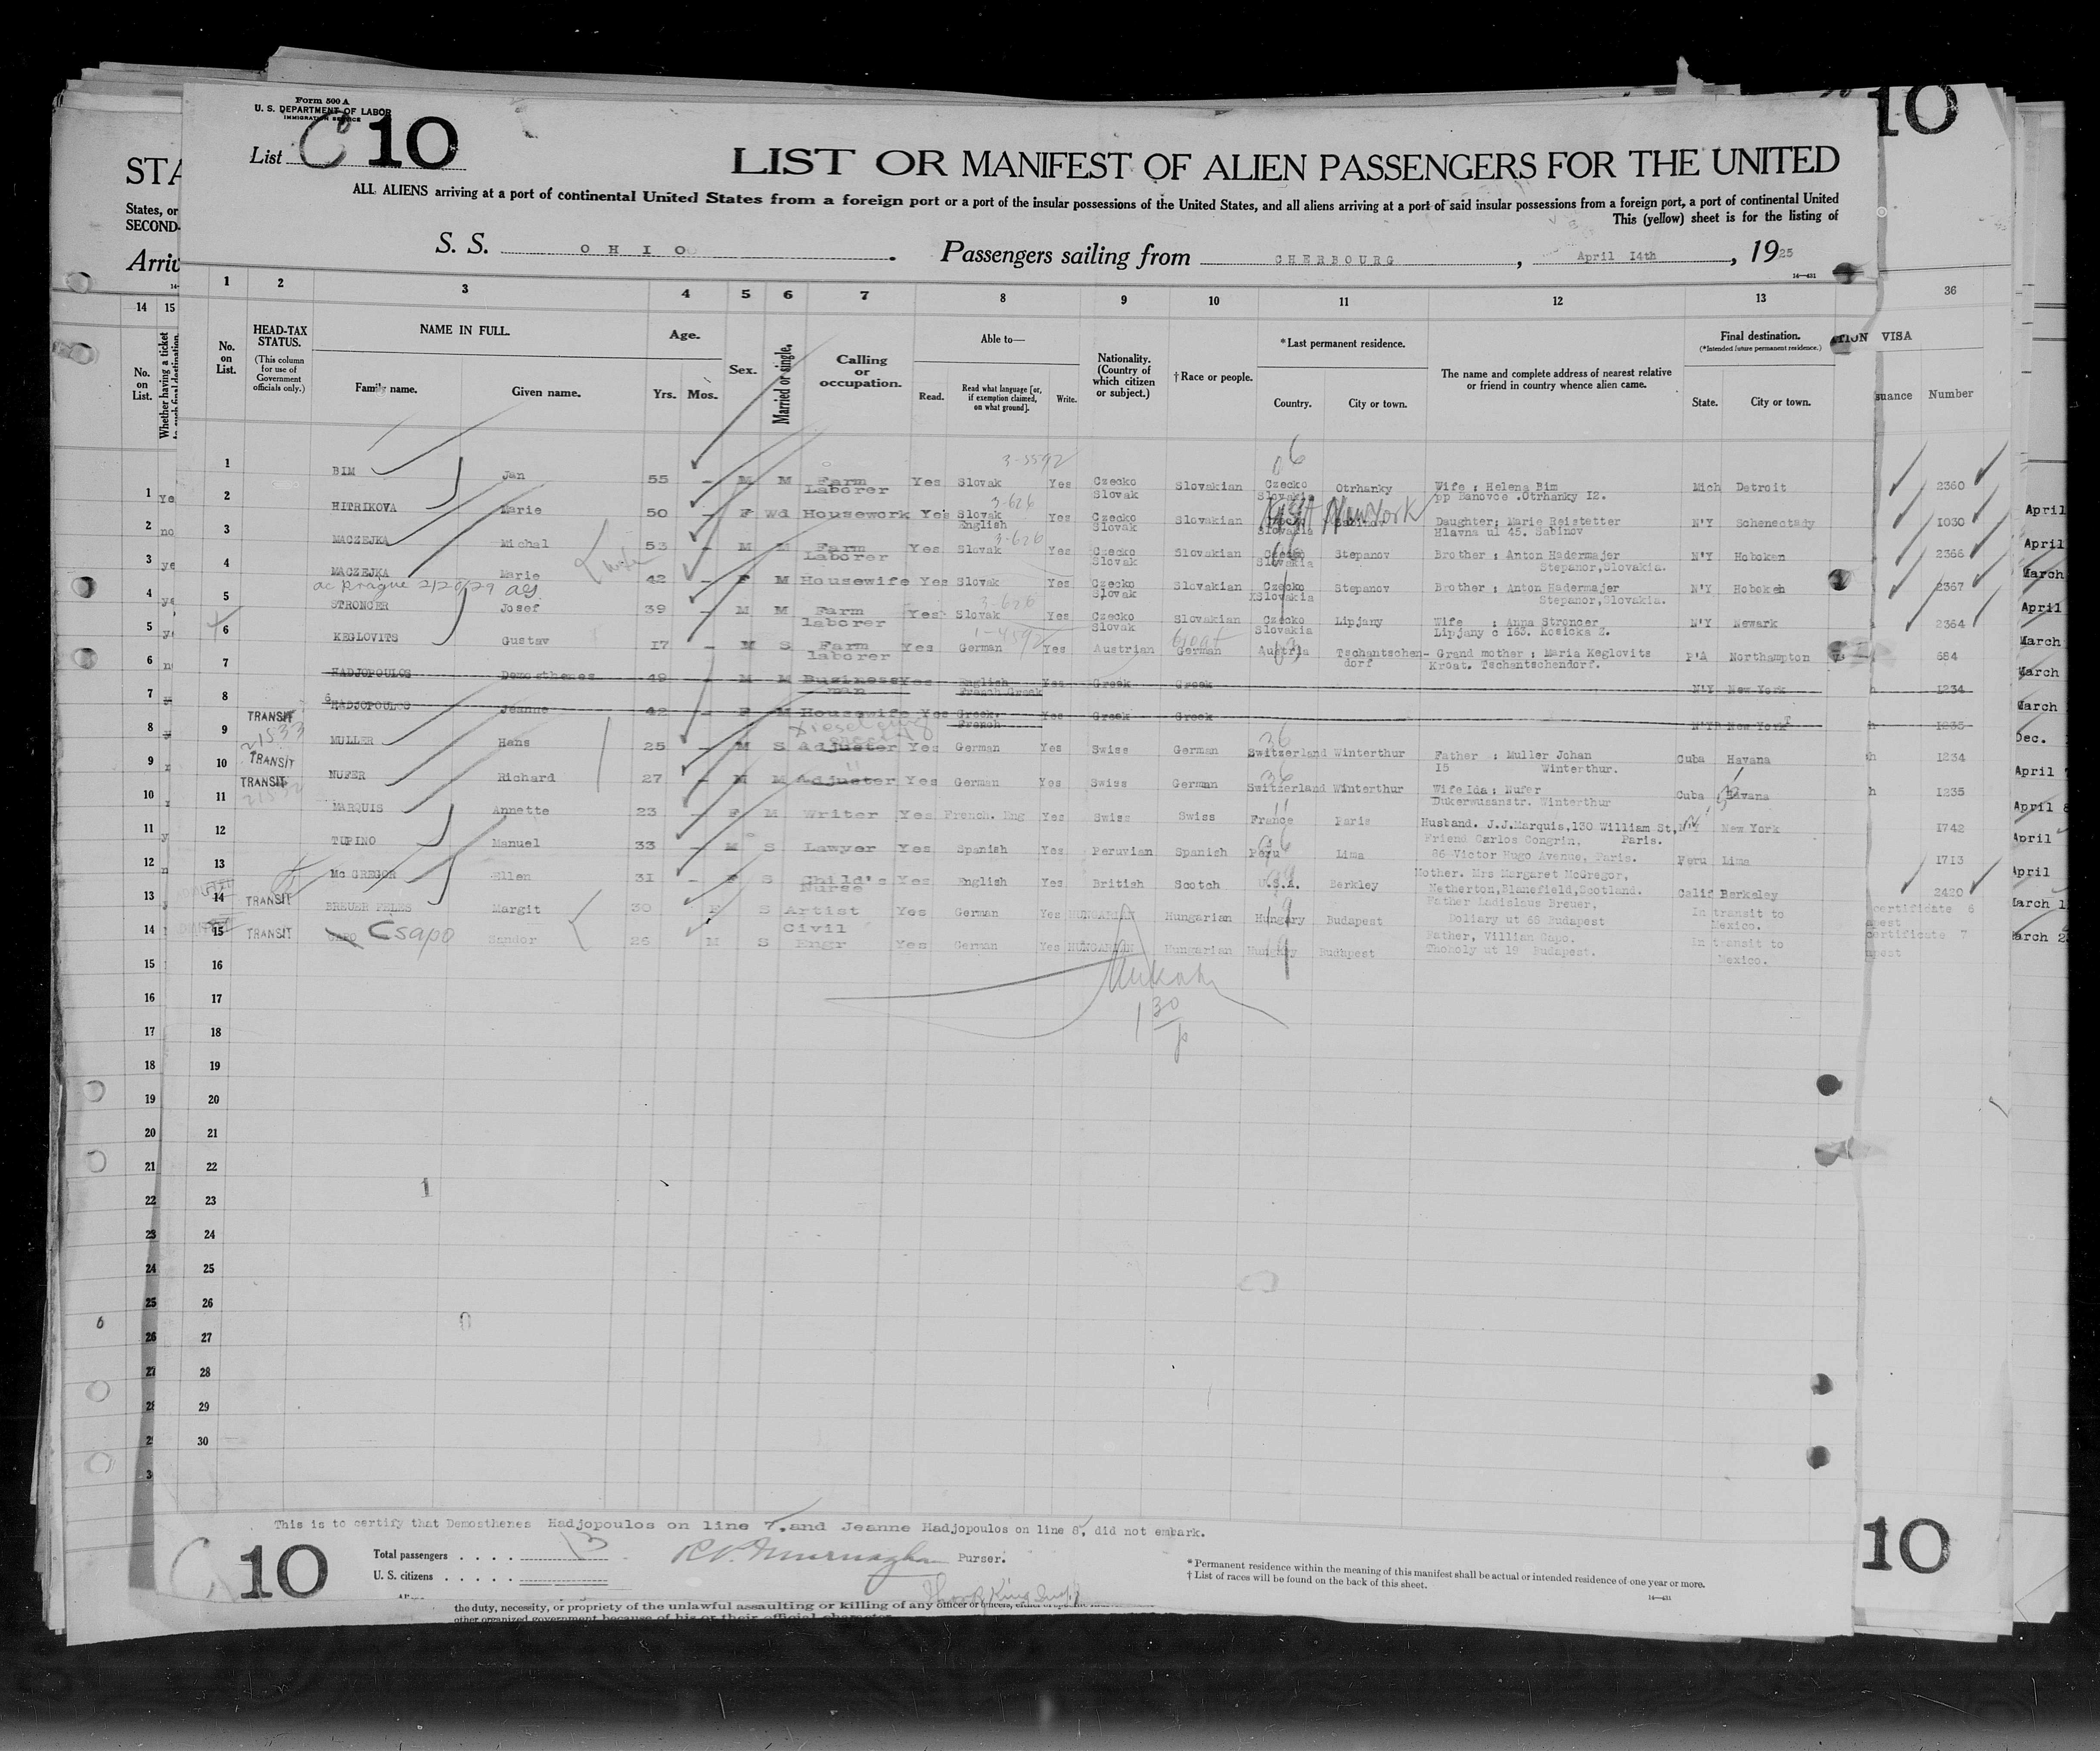 Form 500 A
U. S. DEPARTMENT OF LABOR
IMMIGRATION SERVICE
List C 10
10
STA
LIST OR MANIFEST OF ALIEN PASSENGERS FOR THE UNITED
ALL ALIENS arriving at a port of continental United States from a foreign port or a port of the insular possessions of the United States, and all aliens arriving at a port of said insular possessions from a foreign port, a port of continental United
States, or
SECOND-
This (yellow) sheet is for the listing of
Arriv
S. S. OHIO Passengers sailing from CHERBOURG, April 14th, 1925
14 15 1 2 3 4 5 6 7 8 9 10 11 12 13 36
No. on List. Whether having a ticket No. on List. HEAD-TAX STATUS. (This column for use of Government officials only.) NAME IN FULL. Family name. Given name. Age. Yrs. Mos. Sex. Married or single. Calling or occupation. Able to— Read. Read what language [or, if exemption claimed, on what ground]. Write. Nationality. (Country of which citizen or subject.) †Race or people. *Last permanent residence. Country. City or town. The name and complete address of nearest relative or friend in country whence alien came. Final destination. (*Intended future permanent residence.) State. City or town. VISA suance Number
1 BIM Jan 55 - M M Farm Laborer Yes Slovak 3-5592 Yes Czecko Slovak Slovakian Czecko Slovakia Otrhanky Wife : Helena Bim pp Banovce .Otrhanky I2. Mich Detroit 2360
2 HITRIKOVA Marie 50 - F Wd Housework Yes Slovak English 3-626 Yes Czecko Slovak Slovakian Slovakia New York Daughter; Marie Reistetter Hlavna ul 45. Sabinov N'Y Schenectady 1030 April
3 MACZEJKA Michal 53 - M M Farm Laborer Yes Slovak 3-626 Yes Czecko Slovak Slovakian Czecko Slovakia Stepanov Brother ; Anton Hadermajer Stepanov,Slovakia. N'Y Hoboken 2366 April
4 MACZEJKA Marie wife 42 - F M Housewife Yes Slovak Yes Czecko Slovak Slovakian Czecko XSlovakia Stepanov Brother ; Anton Hadermajer Stepanor,Slovakia. N'Y Hoboken 2367 March
ac Prague 2/20/29
5 STRONCER Josef 39 - M M Farm laborer Yes Slovak 3-626 Yes Czecko Slovak Slovakian Czecko Slovakia Lipjany Wife : Anna Stroncer Lipjany c I63. Kosicka Z. N'Y Newark 2364 April
6 KEGLOVITS Gustav I7 - M S Farm laborer Yes German Yes Austrian German Croat Austria Tschantschen-dorf Grand mother ; Maria Keglovits Kroat. Tschantschendorf. P'A Northampton 684 March
7 HADJOPOULOS Demosthenes 49 - M M Business man Yes English French Greek Yes Greek Greek N'Y New York 1234 March
8 HADJOPOULOS Jeanne 42 - F M Housewife Yes Greek French Yes Greek Greek N'Y New York March
9 TRANSIT 21533 MULLER Hans 25 - M S Adjuster Yes German Yes Swiss German Switzerland Winterthur Father : Muller Johan I5 Winterthur. Cuba Havana 1234 Dec.
10 TRANSIT NUFER Richard 27 - M M Adjuster Yes German Yes Swiss German Switzerland Winterthur Wife Ida ; Nufer Dukerwusanstr. Winterthur Cuba Havana 1235 April
TRANSIT
11 MARQUIS Annette 23 - F M Writer Yes French. Eng Yes Swiss Swiss France Paris Husband. J.J.Marquis,130 William St, N'Y New York I742 April 8
12 TUPINO Manuel 33 - M S Lawyer Yes Spanish Yes Peruvian Spanish Peru Lima Friend Carlos Congrin, Paris. 86 Victor Hugo Avenue, Paris. Peru Lima 1713 April
13 Mc GREGOR Ellen 31 - F S Child's Nurse Yes English Yes British Scotch U.S.A. Berkley Mother. Mrs Margaret McGregor, Netherton,Blanefield,Scotland. Calif Berkeley 2420 April
14 TRANSIT BREUER FELES Margit 30 F S Artist Yes German Yes HUNGARIAN Hungarian Hungary Budapest Father Ladislaus Breuer, Doliary ut 65 Budapest In transit to Mexico. certificate 6 March 1
15 TRANSIT CAPO Csapo Sandor 26 M S Civil Engr Yes German Yes HUNGARIAN Hungarian Hungary Budapest Father, Villian Capo. Thokoly ut 19 Budapest. In transit to Mexico. certificate 7 March 2
16
17
18
19
20
21
22
23
24
25
26
27
28
29
30
This is to certify that Demosthenes Hadjopoulos on line 7, and Jeanne Hadjopoulos on line 8, did not embark.
10
Total passengers . . . . 13
U. S. citizens . . . . .
Purser.
* Permanent residence within the meaning of this manifest shall be actual or intended residence of one year or more.
† List of races will be found on the back of this sheet.
10
the duty, necessity, or propriety of the unlawful assaulting or killing of any officer or officers,
other organized government because of his or their official character